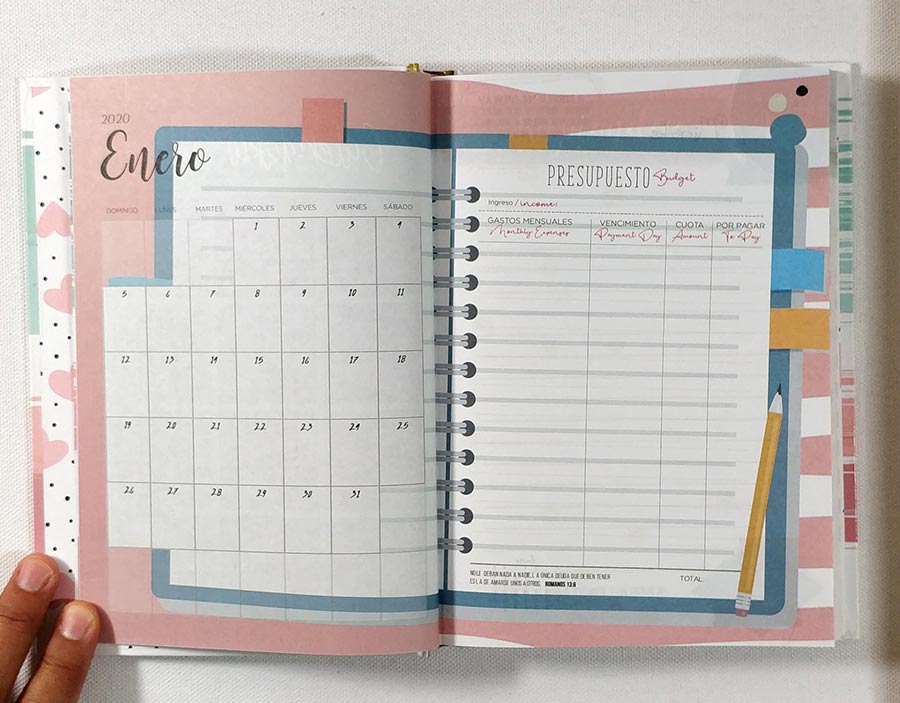 2020
Enero
DOMINGO LUNES MARTES MIÉRCOLES JUEVES VIERNES SÁBADO
1 2 3 4
5 6 7 8 9 10 11
12 13 14 15 16 17 18
19 20 21 22 23 24 25
26 27 28 29 30 31
PRESUPUESTO Budget
Ingreso / income:
GASTOS MENSUALES VENCIMIENTO CUOTA POR PAGAR
Monthly Expenses Payment Day Amount To Pay
NO LE DEBAN NADA A NADIE, LA ÚNICA DEUDA QUE DEBEN TENER
ES LA DE AMARSE UNOS A OTROS. ROMANOS 13:8
TOTAL: